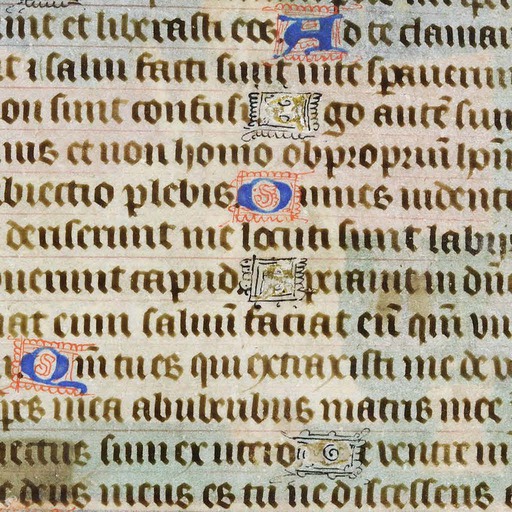 unt et liberasti eos Ad te clamau
t ⁊ salui facti sunt in te sperauerun
on sunt confusi Ego autē sum
mis et non homo obpropriū hoīm
biectio plebis Omnes uidenti
deriserunt me locuti sunt labijs
ouerunt capud Sperauit in dn̄o
iat eum saluū faciat eū qm̄ vu
Qm̄ tu es qui extraxisti me de v
pes mea ab uberibus matris mee
iectus sum ex utero De uentre m
e deus meus es tu ne discesseris